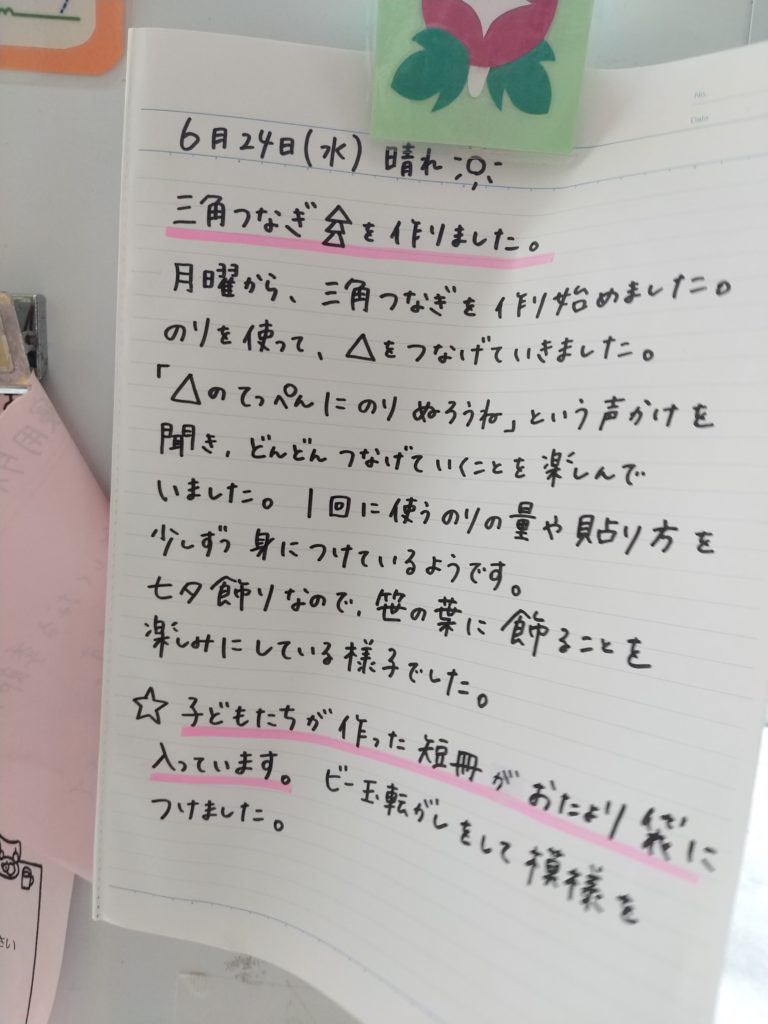 No.
Date
6月24日(水) 晴れ
三角つなぎを作りました。
月曜から、三角つなぎを作り始めました。
のりを使って、△をつなげていきました。
「△のてっぺんにのりぬろうね」という声かけを
聞き、どんどんつなげていくことを楽しんで
いました。1回に使うのりの量や貼り方を
少しずつ身につけているようです。
七夕飾りなので、笹の葉に飾ることを
楽しみにしている様子でした。
☆子どもたちが作った短冊がおたより袋に
入っています。ビー玉転がしをして模様を
つけました。
さい